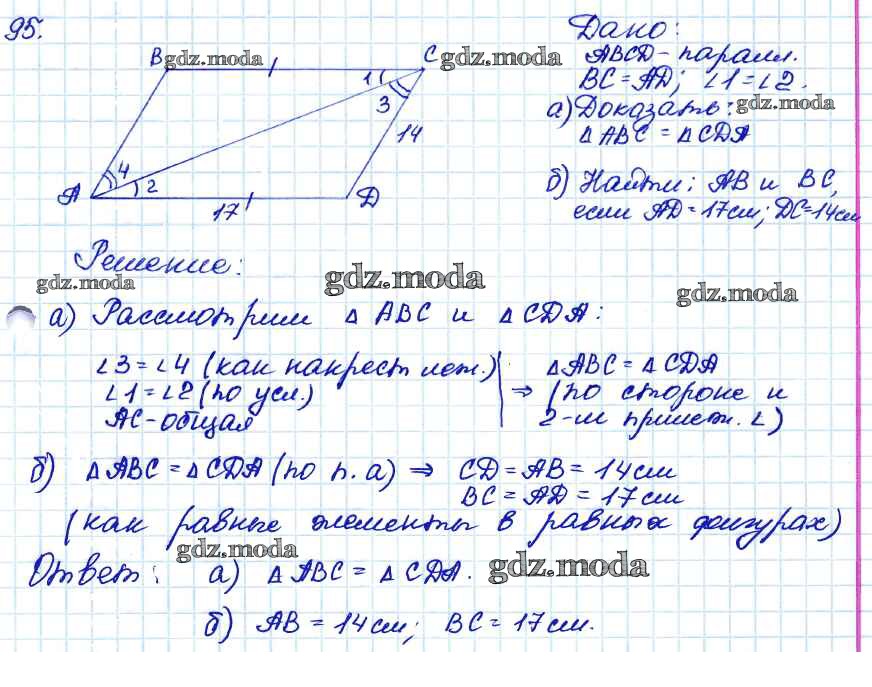 95.
B gdz.moda C gdz.moda
1
3
14
4
2
A
D
17
Дано:
ABCD - паралл.
BC = AD; ∠1 = ∠2.
а) Доказать: gdz.moda
△ ABC = △ CDA
б) Найти: AB и BC,
если AD = 17 см; DC = 14 см
Решение:
gdz.moda gdz.moda gdz.moda
а) Рассмотрим △ ABC и △ CDA:
∠3 = ∠4 (как накрест леж.)
∠1 = ∠2 (по усл.)
AC - общая
⇒ △ ABC = △ CDA
(по стороне и
2-м прилеж. ∠)
б) △ ABC = △ CDA (по п. а) ⇒ CD = AB = 14 см
BC = AD = 17 см
(как равные элементы в равных фигурах)
gdz.moda
Ответ: а) △ ABC = △ CDA. gdz.moda
б) AB = 14 см; BC = 17 см.